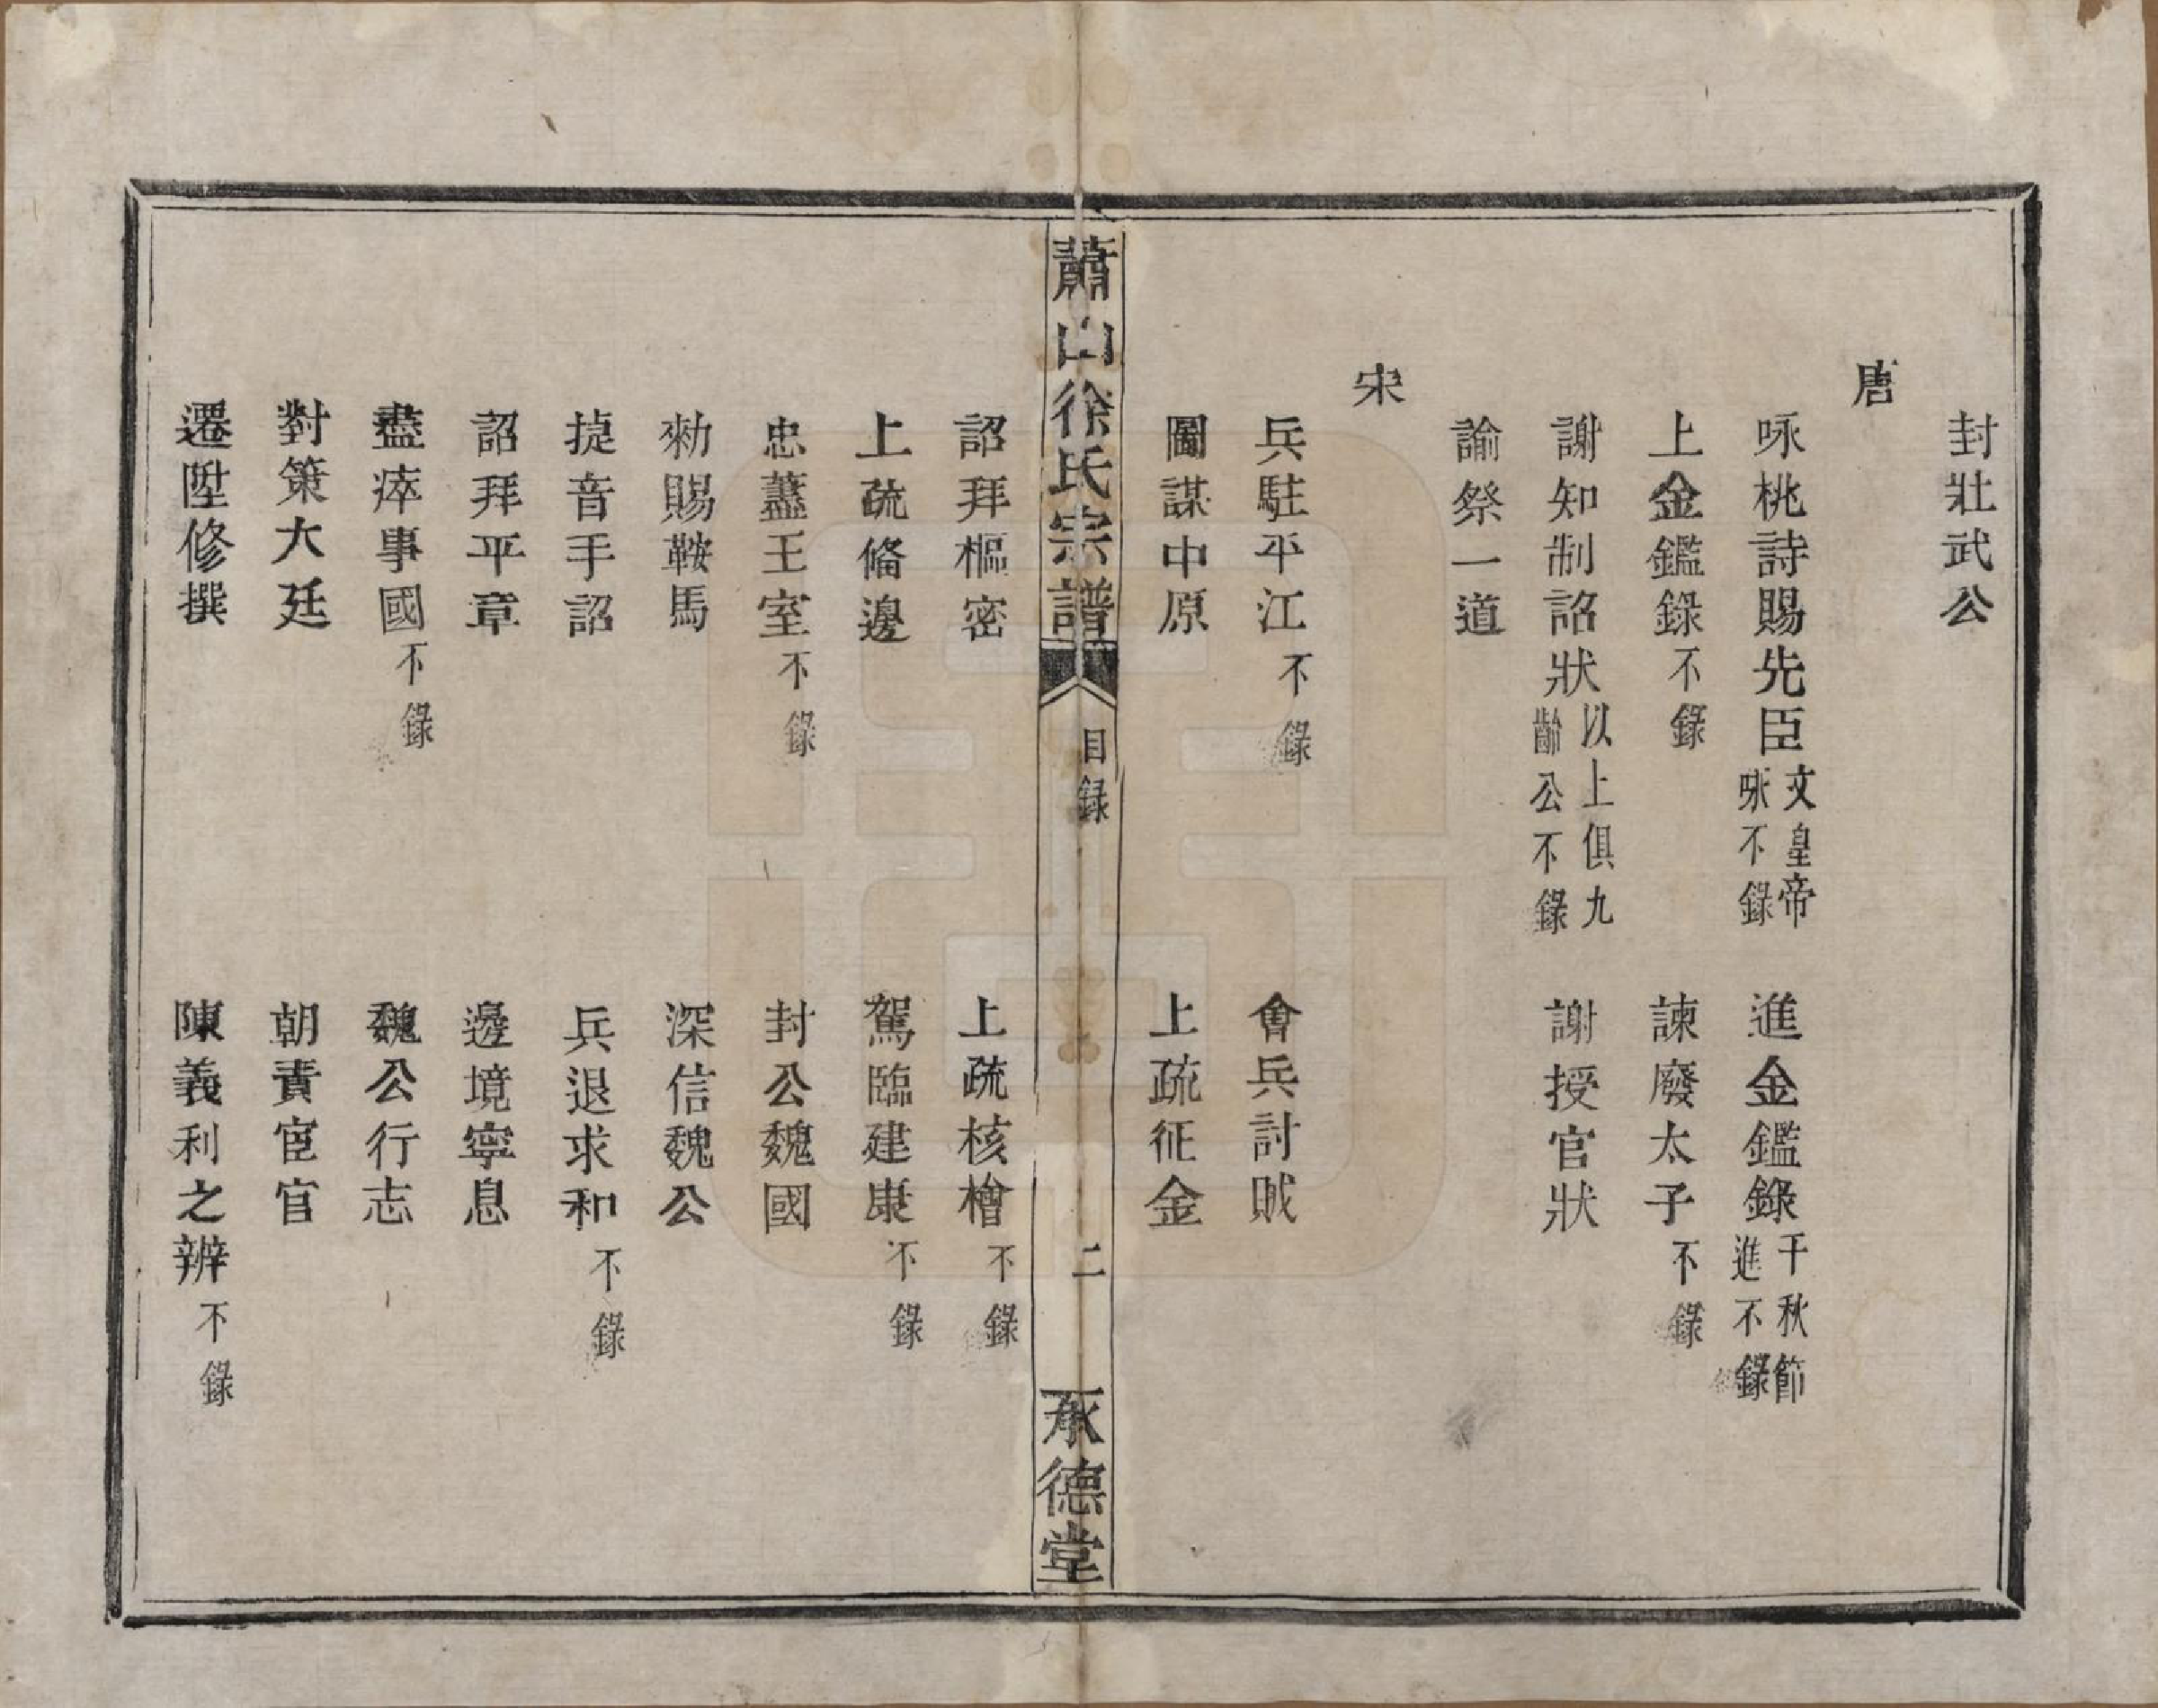 封壯武公
唐
咏桃詩賜先臣文皇帝咏不錄　進金鑑錄千秋節進不錄
上金鑑錄不錄　諫廢太子不錄
謝知制誥狀以上俱九齡公不錄　謝授官狀
諭祭一道
宋
兵駐平江不錄　會兵討賊
圖謀中原　上疏征金
蕭山徐氏宗譜　目録　二　承德堂
詔拜樞密　上疏核檜不錄
上疏俻邊　駕臨建康不錄
忠藎王室不錄　封公魏國
勑賜鞍馬　深信魏公
捷音手詔　兵退求和不錄
詔拜平章　邊境寧息
盡瘁事國不錄　魏公行志
對策大廷　朝責宦官
遷陞修撰　陳義利之辨不錄